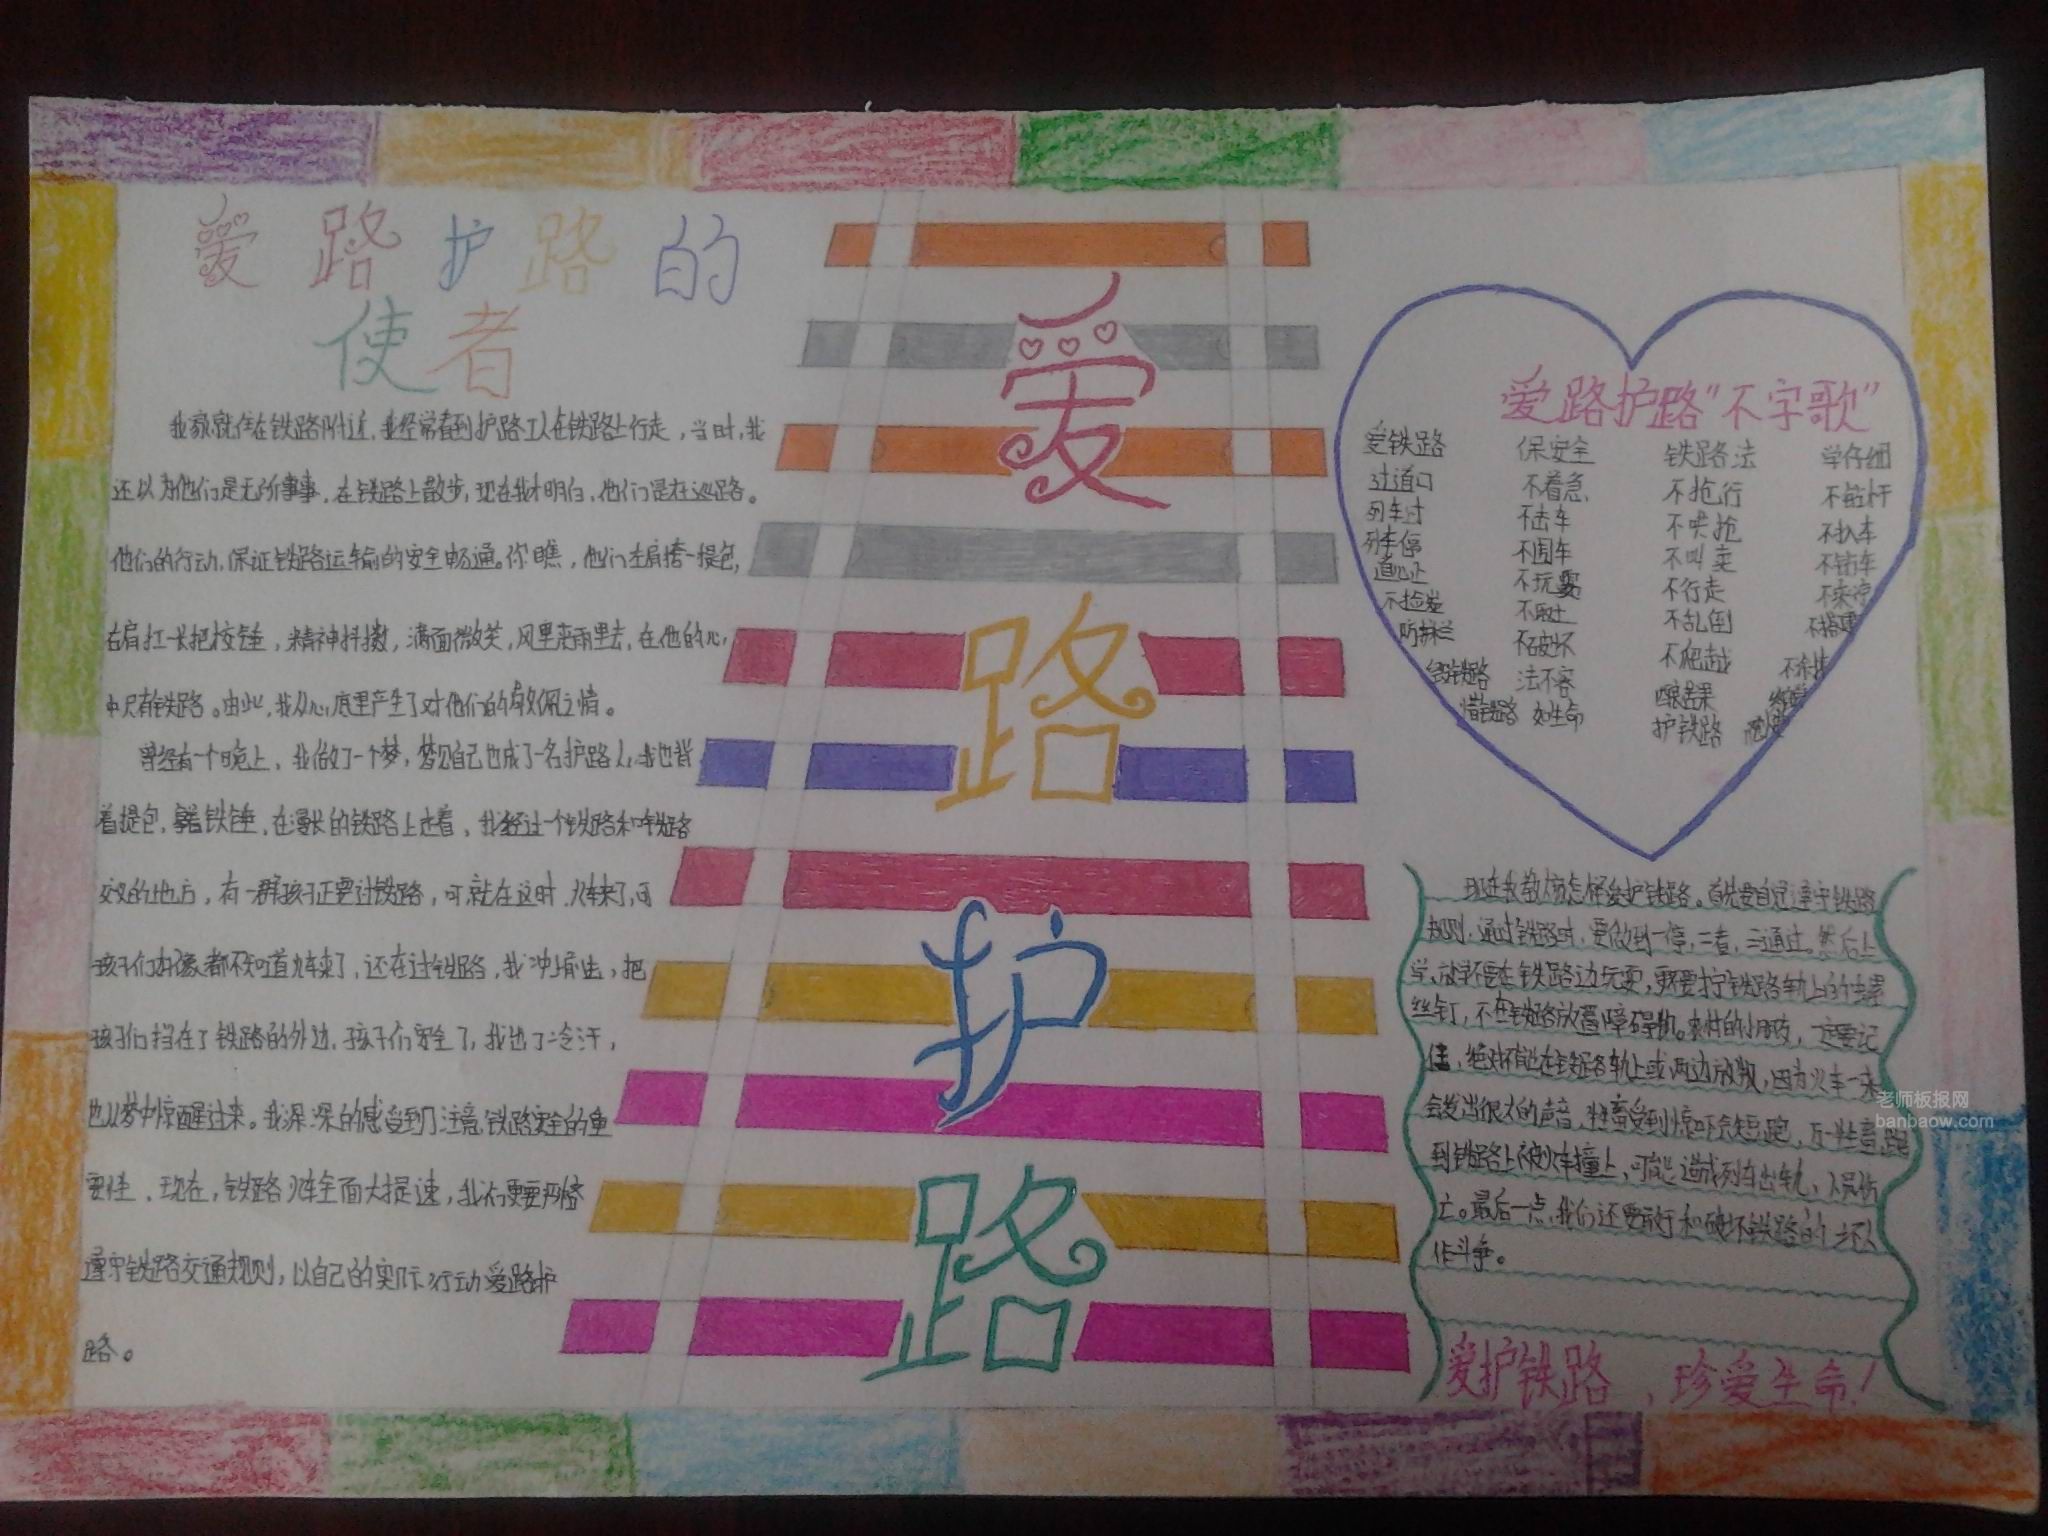 爱路护路的
使者
我家就住在铁路附近,我经常看到护路工人在铁路上行走,当时,我
还以为他们是无所事事,在铁路上散步,现在我才明白,他们是在巡路。
他们的行动,保证铁路运输的安全畅通。你瞧,他们左肩挎一提包,
右肩扛一长把检锤,精神抖擞,满面微笑,风里来雨里去,在他的心
中只有铁路。由此,我从心底里产生了对他们的敬佩之情。
曾经有一个晚上,我做了一个梦,梦见自己也成了一名护路人,我也背
着提包,拿着铁锤,在漫长的铁路上走着,我经过一个铁路和铁路
交叉的地方,有一群孩子正要过铁路,可就在这时,火车来了,可
孩子们好像都不知道火车来了,还在过铁路,我冲上前去,把
孩子们挡在了铁路的外边,孩子们安全了,我出了冷汗,
也从梦中惊醒过来。我深深的感受到了注意铁路安全的重
要性,现在,铁路火车全面大提速,我们更要严格
遵守铁路交通规则,以自己的实际行动爱路护
路。
爱
路
护
路
爱路护路"不字歌"
爱铁路 保安全 铁路法 学仔细
过道口 不着急 不抢行 不钻杆
列车过 不击车 不哄抢 不扒车
列车停 不围车 不叫卖 不钻车
不玩耍 不行走 不乘凉
不捡炭 不取土 不乱倒 不搭建
防护栏 不破坏 不爬越
毁铁路 法不容 酿恶果
惜铁路 如生命 护铁路
现在我教你怎样爱护铁路。首先要自觉遵守铁路
规则,通过铁路时,要做到一停,二看,三通过。然后上
学、放学不要在铁路边玩耍,更不要拧铁路轨上的
丝钉,不在铁路放置障碍物。农村的小朋友,一定要记
住,绝对不能在铁路轨上或两边放牧,因为火车一来
会发出很大的声音,牲畜受到惊吓会短跑,万一牲畜跑
到铁路上被火车撞上,可能造成列车出轨,人员伤
亡。最后一点,我们还要敢于和破坏铁路的坏人
作斗争。
爱护铁路,珍爱生命!
老师板报网
banbaow.com